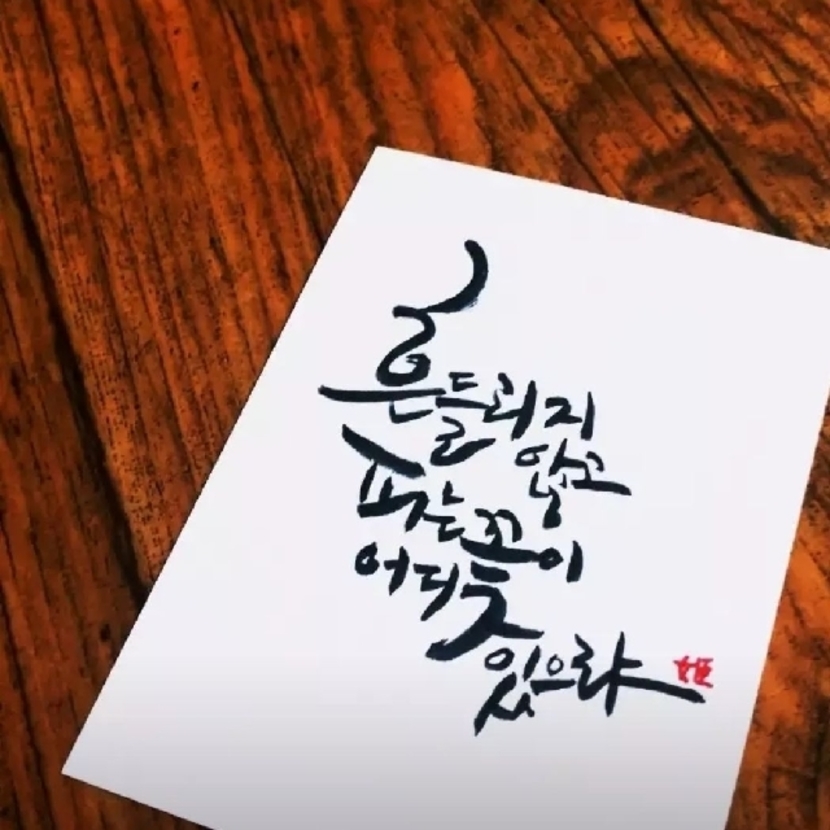 흔들리지
않고
피는 꽃이
어디
있으랴
姬